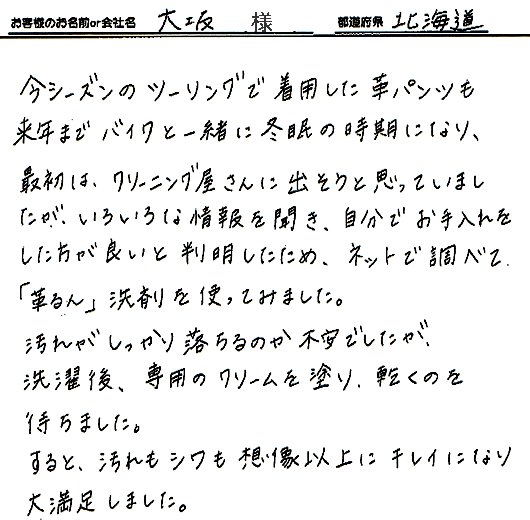 お客様のお名前or会社名 大坂 様 都道府県 北海道
今シーズンの ツーリングで 着用した 革パンツも
来年まで バイクと一緒に 冬眠の時期になり、
最初は、クリーニング屋さんに出そうと思っていまし
たが、いろいろな情報を聞き、自分でお手入れを
した方が良いと判明したため、ネットで調べて、
「革るん」洗剤を使ってみました。
汚れがしっかり落ちるのか不安でしたが、
洗濯後、専用のクリームを塗り、乾くのを
待ちました。
すると、汚れもシワも想像以上にキレイになり
大満足しました。